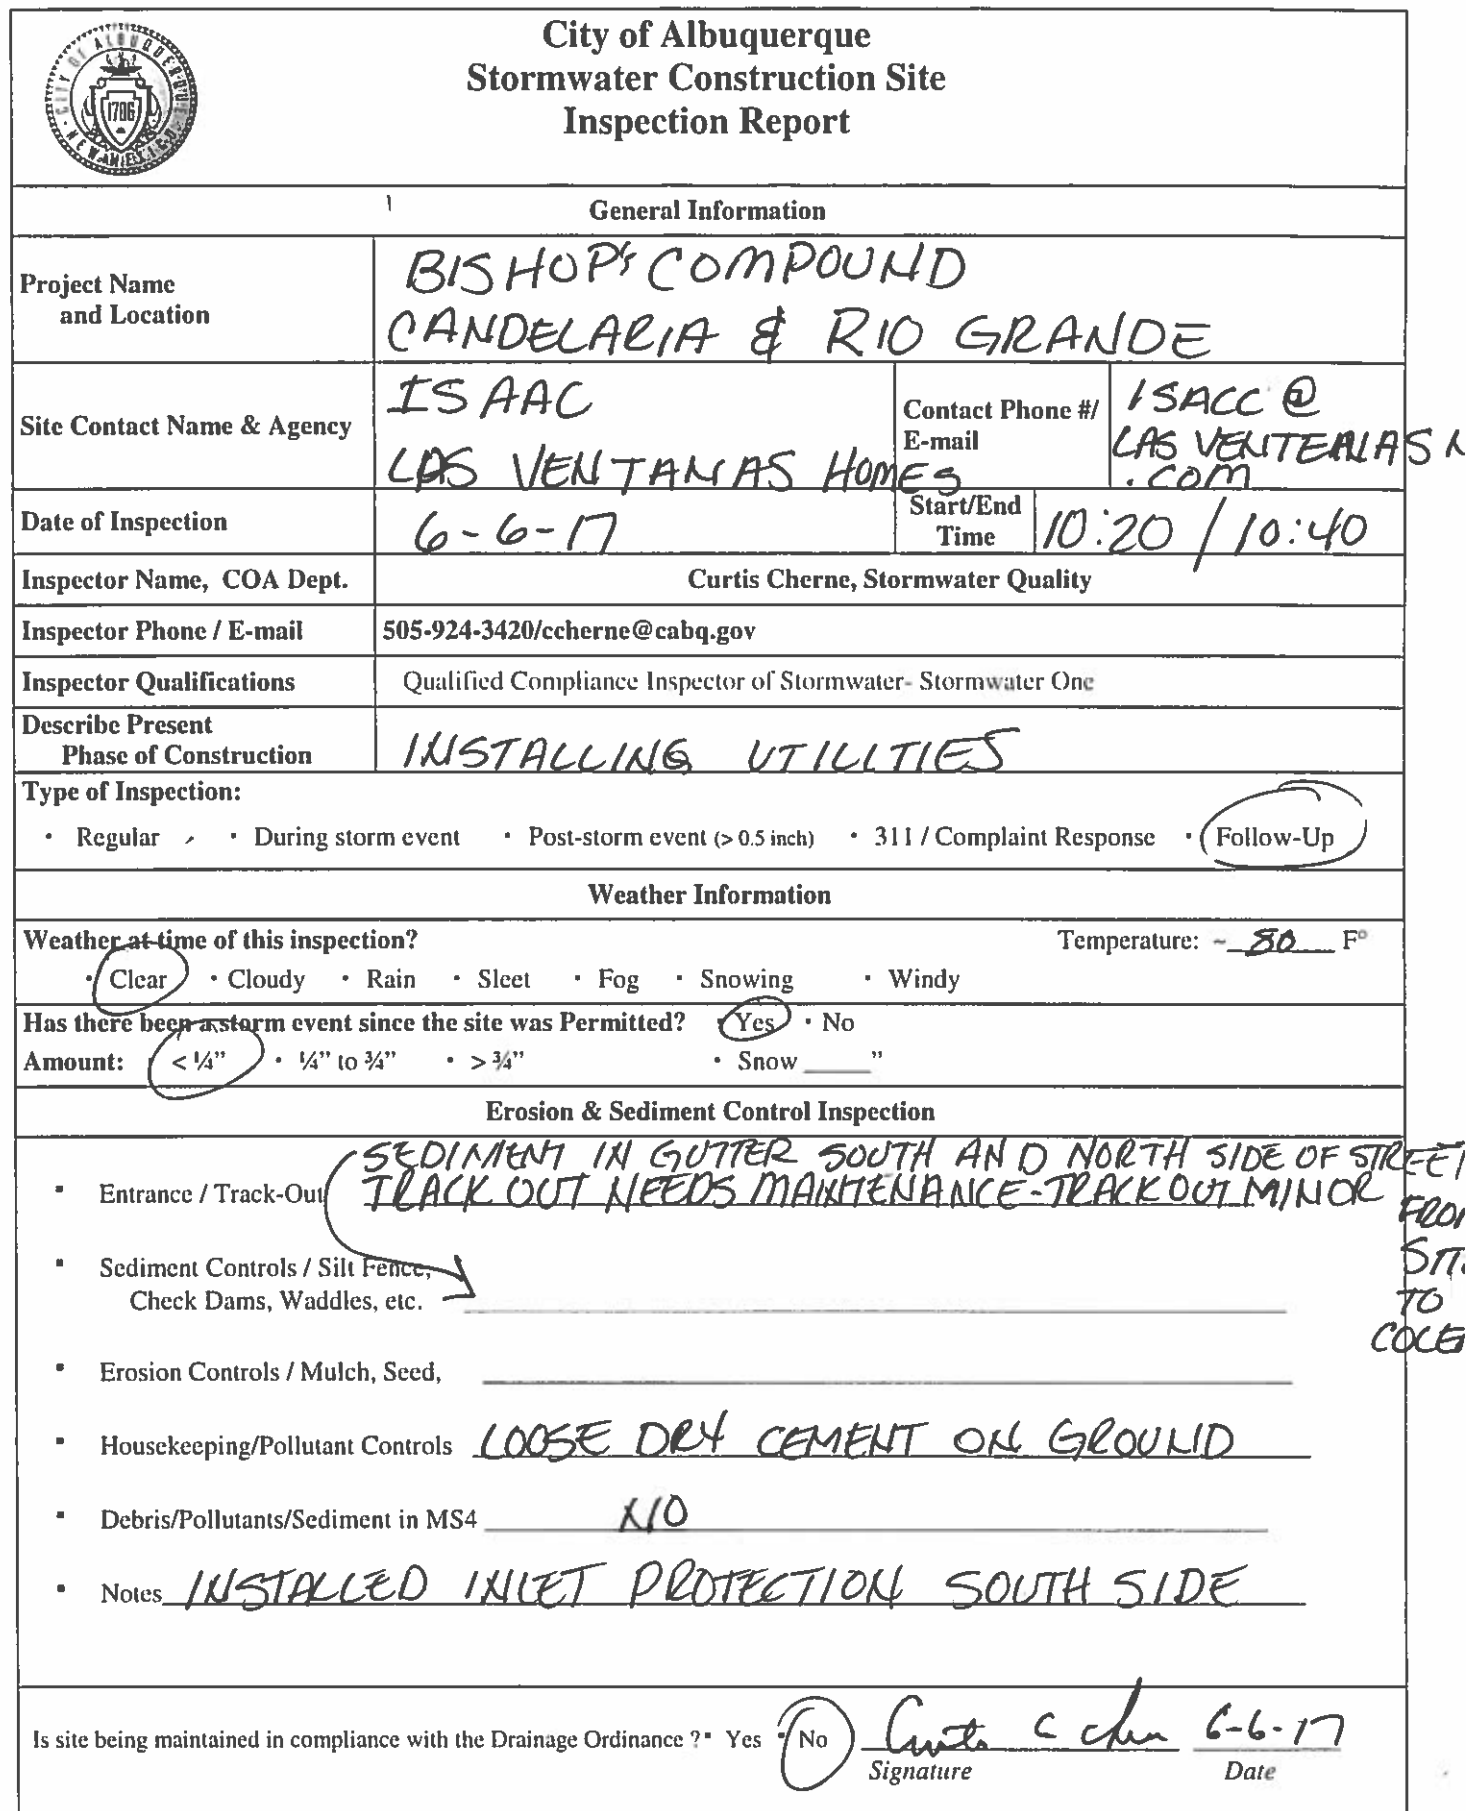 City of Albuquerque
Stormwater Construction Site
Inspection Report
1706
General Information
Project Name
and Location
BISHOP'S COMPOUND
CANDELARIA & RIO GRANDE
Site Contact Name & Agency
ISAAC
LAS VENTANAS HOMES
Contact Phone #/
E-mail
ISACC @
LAS
.COM
Date of Inspection
6-6-17
Start/End
Time
10:20 / 10:40
Inspector Name, COA Dept.
Curtis Cherne, Stormwater Quality
Inspector Phone / E-mail
505-924-3420/ccherne@cabq.gov
Inspector Qualifications
Qualified Compliance Inspector of Stormwater- Stormwater One
Describe Present
Phase of Construction
INSTALLING UTILITIES
Type of Inspection:
· Regular · During storm event · Post-storm event (> 0.5 inch) · 311 / Complaint Response · Follow-Up
Weather Information
Weather at time of this inspection? Temperature: ~ 80 F°
· Clear · Cloudy · Rain · Sleet · Fog · Snowing · Windy
Has there been a storm event since the site was Permitted? · Yes · No
Amount: < ¼” · ¼” to ¾” · > ¾” · Snow ______”
Erosion & Sediment Control Inspection
SEDIMENT IN GUTTER SOUTH AND NORTH SIDE OF STREET
▪ Entrance / Track-Out TRACK OUT NEEDS MAINTENANCE-TRACK OUT MINOR
FROM
SITE
TO
▪ Sediment Controls / Silt Fence,
Check Dams, Waddles, etc.
▪ Erosion Controls / Mulch, Seed,
▪ Housekeeping/Pollutant Controls LOOSE DRY CEMENT ON GROUND
▪ Debris/Pollutants/Sediment in MS4 NO
▪ Notes INSTALLED INLET PROTECTION SOUTH SIDE
Is site being maintained in compliance with the Drainage Ordinance ?▪ Yes ▪ No
6-6-17
Signature
Date